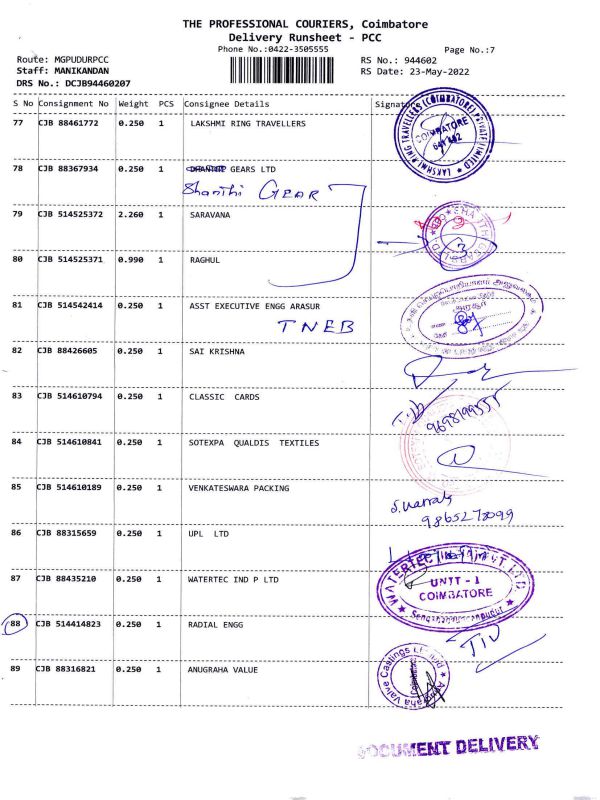 THE PROFESSIONAL COURIERS, Coimbatore
Delivery Runsheet - PCC
Phone No.:0422-3505555
Page No.:7
Route: MGPUDURPCC
RS No.: 944602
Staff: MANIKANDAN
RS Date: 23-May-2022
DRS No.: DCJB94460207
S No Consignment No Weight PCS Consignee Details Signature
77 CJB 88461772 0.250 1 LAKSHMI RING TRAVELLERS
LAKSHMI RING TRAVELLERS (COIMBATORE) PRIVATE LIMITED
COIMBATORE
641 402
78 CJB 88367934 0.250 1 GEARS LTD
Shanthi GEAR
79 CJB 514525372 2.260 1 SARAVANA
3
80 CJB 514525371 0.990 1 RAGHUL
81 CJB 514542414 0.250 1 ASST EXECUTIVE ENGG ARASUR
TNEB
82 CJB 88426605 0.250 1 SAI KRISHNA
83 CJB 514610794 0.250 1 CLASSIC CARDS
84 CJB 514610841 0.250 1 SOTEXPA QUALDIS TEXTILES
85 CJB 514610189 0.250 1 VENKATESWARA PACKING
86 CJB 88315659 0.250 1 UPL LTD
87 CJB 88435210 0.250 1 WATERTEC IND P LTD
UNIT - 1
COIMBATORE
88 CJB 514414823 0.250 1 RADIAL ENGG
89 CJB 88316821 0.250 1 ANUGRAHA VALUE
Anugraha Valve Castings Limited
DOCUMENT DELIVERY